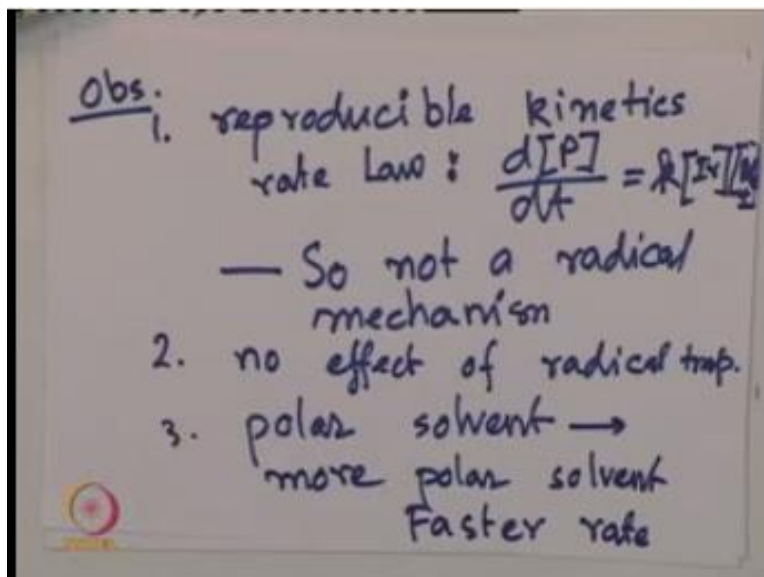 Obs.
1. reproducible kinetics
rate Law : d[P]/dt = k[Ir][
— So not a radical
mechanism
2. no effect of radical trap.
3. polar solvent →
more polar solvent
Faster rate